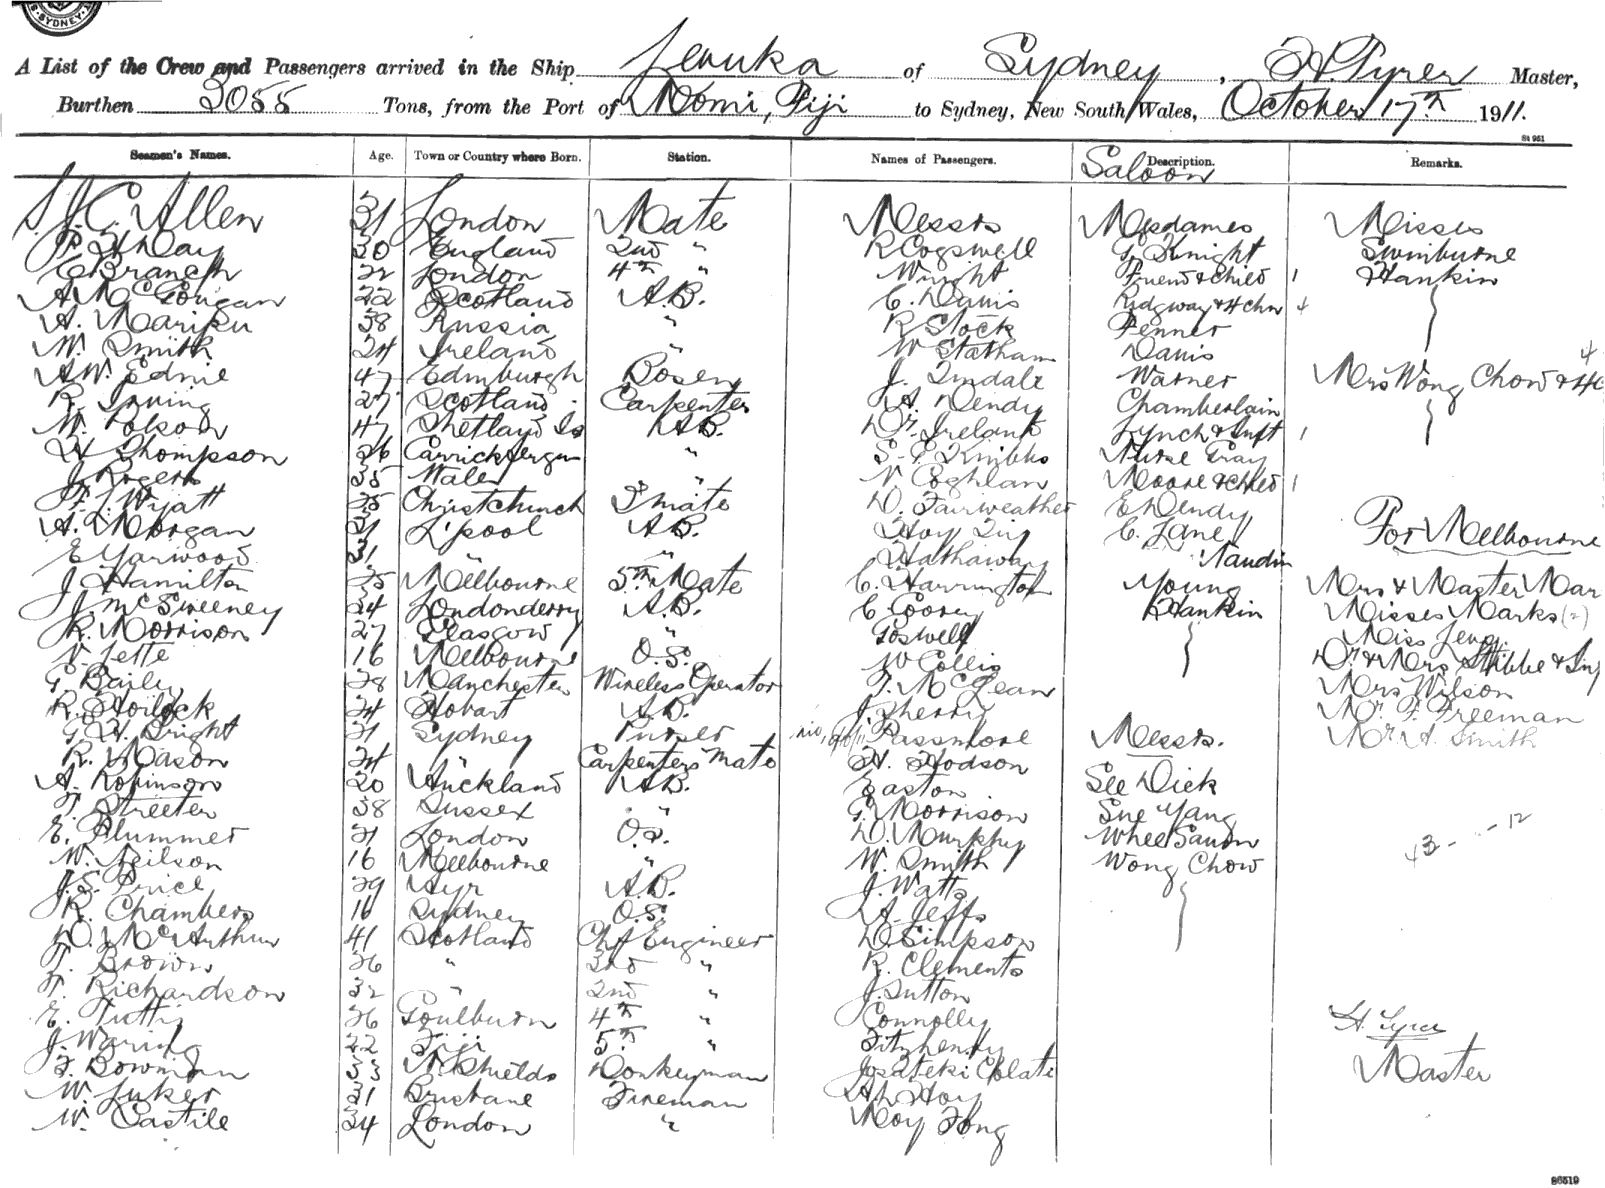 SYDNEY
A List of the Crew and Passengers arrived in the Ship Levuka of Sydney, H. Tyrer Master,
Burthen 3055 Tons, from the Port of Momi, Fiji to Sydney, New South Wales, October 17th 1911.
St 951
Seamen's Names. Age. Town or Country where Born. Station. Names of Passengers. Description. Remarks.
Saloon
Allen 31 London Mate Messrs Mesdames Misses
Day 30 England 2nd " R Cogswell G. Knight Swinburne
C Branch London 4th " Wright Friend & Child 1 Hankin
A. McGougan 22 Scotland A.B. C. Davis Ridgway & 4 Chn 4
A. 38 Russia " R Stock Fenner
W. Smith 24 Ireland " W Statham Davis
A.W. Ednie 47 Edinburgh Bosen J. Tindale Warner Mrs Wong Chow & 4 C 4
R. Irving 27 Scotland Carpenter A. Dendy Chamberlain
W. Polson 47 Shetland Is A.B. Dr. Ireland Lynch & Inft 1
H Thompson 26 Carrickfergus " S. G. Knibbs Nurse Gray
J. Rogers 35 Wales " N Coghlan Moore & Child 1
Wyatt 25 Christchurch 3 Mate D. Fairweather E Dendy
A. Morgan 21 L'pool A.B. Hoy C. Lane For Melbourne
E Yarwood 31 " " Hathaway Naudin
J. Hamilton 25 Melbourne 5th Mate C. Harrington Young Mrs & Master Mar
J. McSweeney 24 Londonderry A.B. C Hankin Misses Marks (2)
R. Morrison 27 Glasgow " Goswell Miss
V. Jette 16 Melbourne O.S. W Collis Dr. & Mrs Stibbe & Inf
G Baily 28 Manchester Wireless Operator McLean Mrs Wilson
R. Horlock 24 Hobart A.B. J. Sherry Mr. F. Freeman
G. H. Bright 21 Sydney Purser Passmore Messrs. Mr A. Smith
R. Mason 24 Carpenters Mate H. Hodson
A. Robinson 20 Auckland A.B. Easton See Dick
Streeter 38 Sussex " G. Morrison Sue Yang
E. Plummer 21 London O.S. D. Murphy Whee Saudn
W. Neilson 16 Melbourne " W. Smith Wong Chow 43 - 12
J.S. Price 29 Ayr A.B. J. Watts
R. Chambers 16 Sydney O.S. A. Jeffs
D. McArthur 41 Scotland Chf Engineer D Simpson
Brown 26 " 3rd " R. Clements
Richardson 32 " 2nd " J. Sutton
E. Tutty 26 Goulburn 4th " Connolly H. Tyrer
J. Waring 22 Fiji 5th " Fitzhenry Master
F. Bowman 33 N. Shields Donkeyman
W. Luker 21 Brisbane Fireman Ah Hoy
W. Castile 34 London " Moy Fong
86519